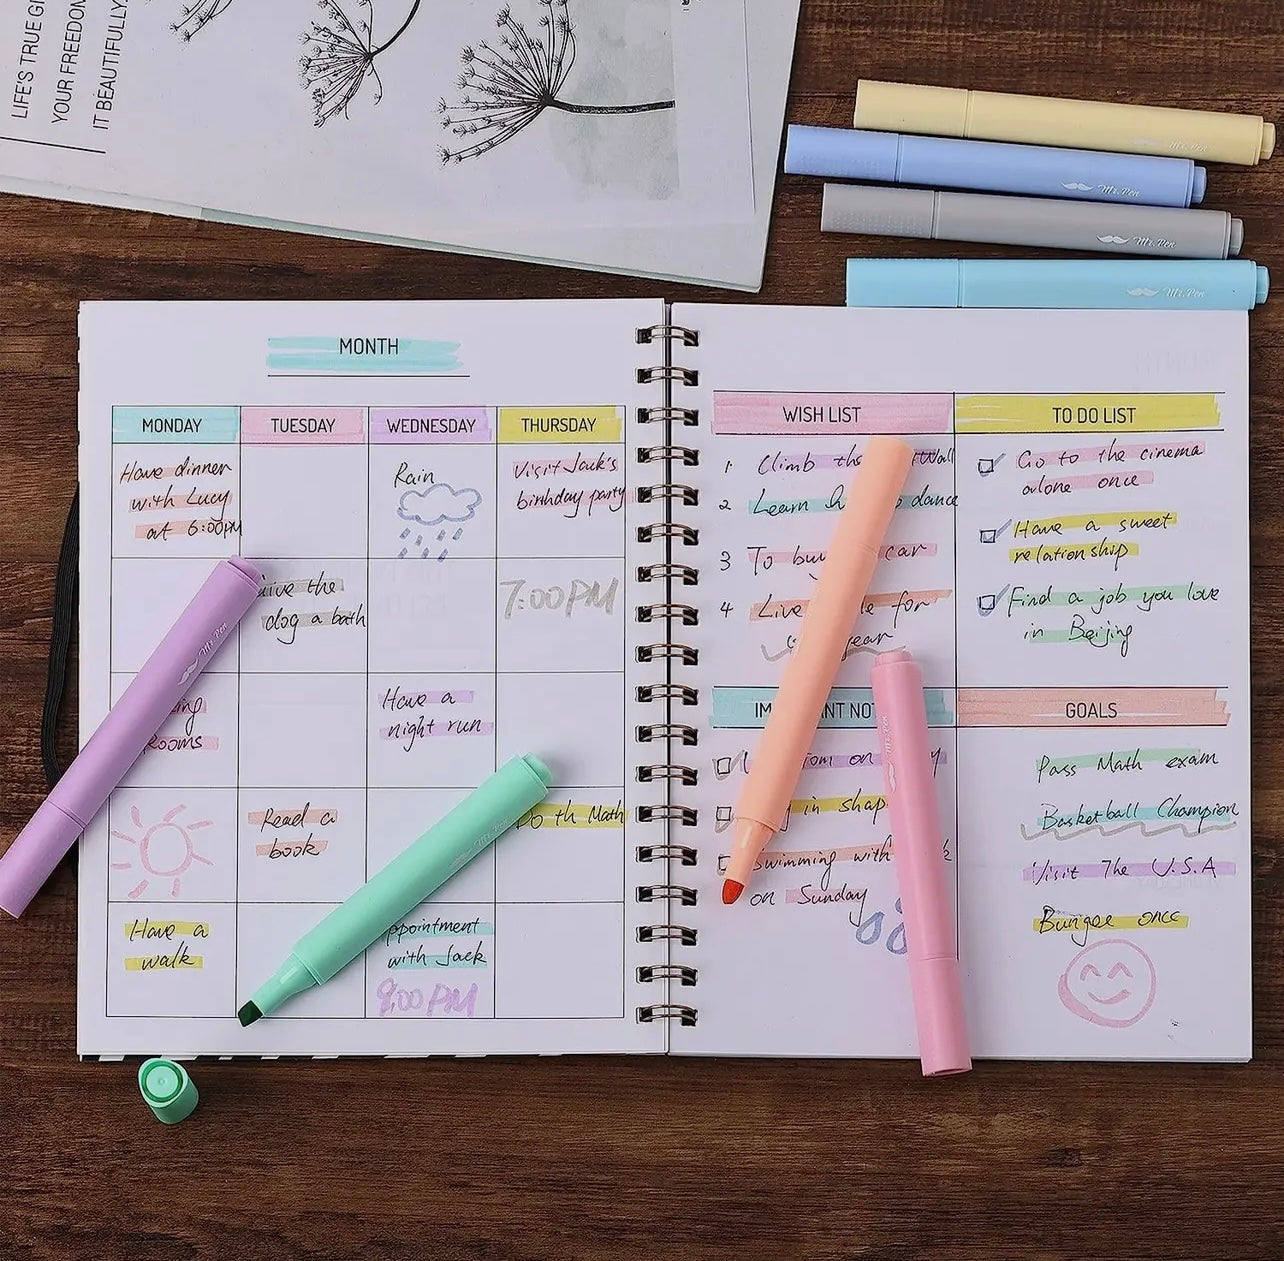 LIFE'S TRUE
YOUR FREEDOM
IT BEAUTIFULLY
Mr. Pen
Mr. Pen
Mr. Pen
Mr. Pen
MONTH
MONDAY TUESDAY WEDNESDAY THURSDAY
Have dinner
with Lucy
at 6:00pm
Rain
Visit Jack's
birthday party
the
dog a bath
7:00PM
Mr. Pen
Have a
night run
Read a
book
th Math
Have a
walk
with Jack
9:00PM
WISH LIST
1 Climb
2 Learn dance
3 To car
4 Live for
year
TO DO LIST
Go to the cinema
alone once
Have a sweet
relationship
Find a job you love
in Beijing
on
in
Swimming with
on Sunday
GOALS
Pass Math exam
Basketball Champion
Visit The U.S.A
Bungee once